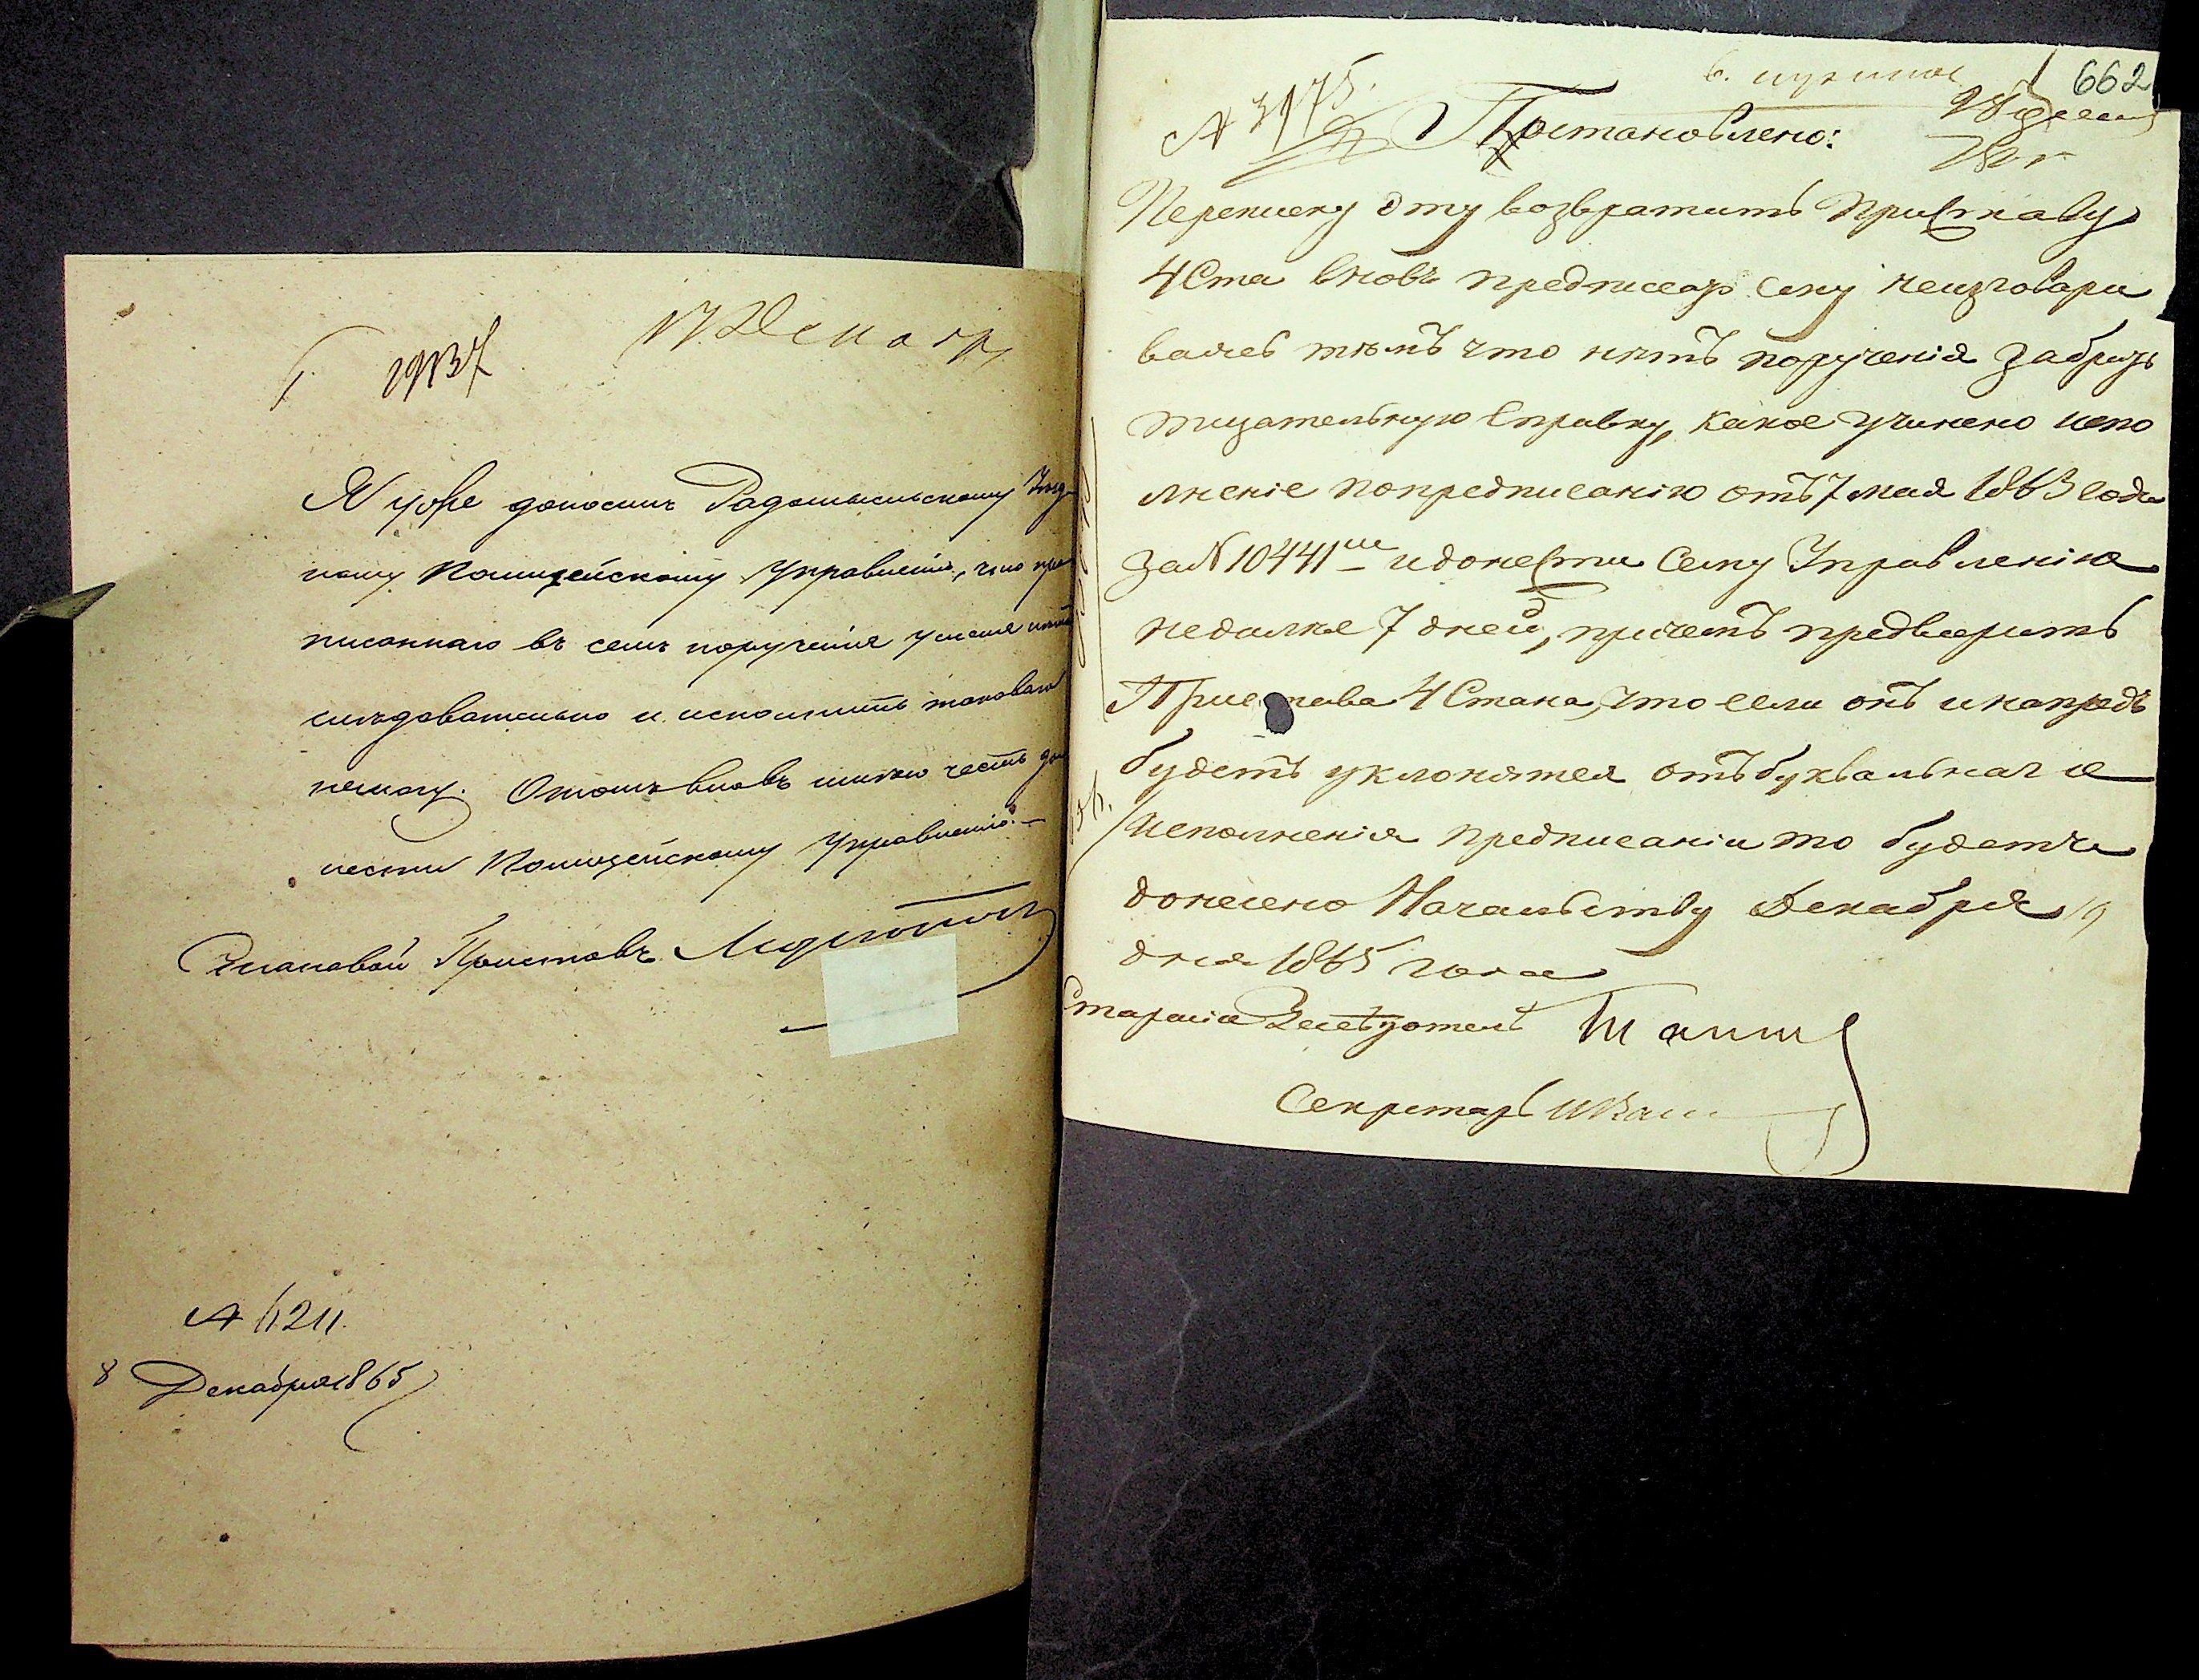 17 Декабр
Я уже доносилъ Радомысльскому Уезд
ному Полицейскому Управленію, что про
писаннаго въ семъ порученія у меня нетъ
следовательно и исполнить таковаго
немогу. Отомъ вновь имею честь до
нести Полицейскому Управленію.
Становой Приставъ
№ 6211.
8 Декабря 1865
662
№ 3175.
Постановлено:
Переписку эту возвратить Приставу
4 Ста вновь предписавъ ему неизговари
ваясь темъ что нетъ порученія забрать
тщательную Справку, какое учинено испо
лненіе попредписанію отъ 7 мая 1863 года
за № 10441 и донести Сему Управленію
недалее 7 дней, причемъ предварить
Пристава 4 Стана, что если онъ инапредъ
будетъ уклонятся отъ буквальнаго
Исполненія предписаніи то будетъ
донесено Начальству Декабря 19
дня 1865 года
Старшій Заседатель
Секретарь